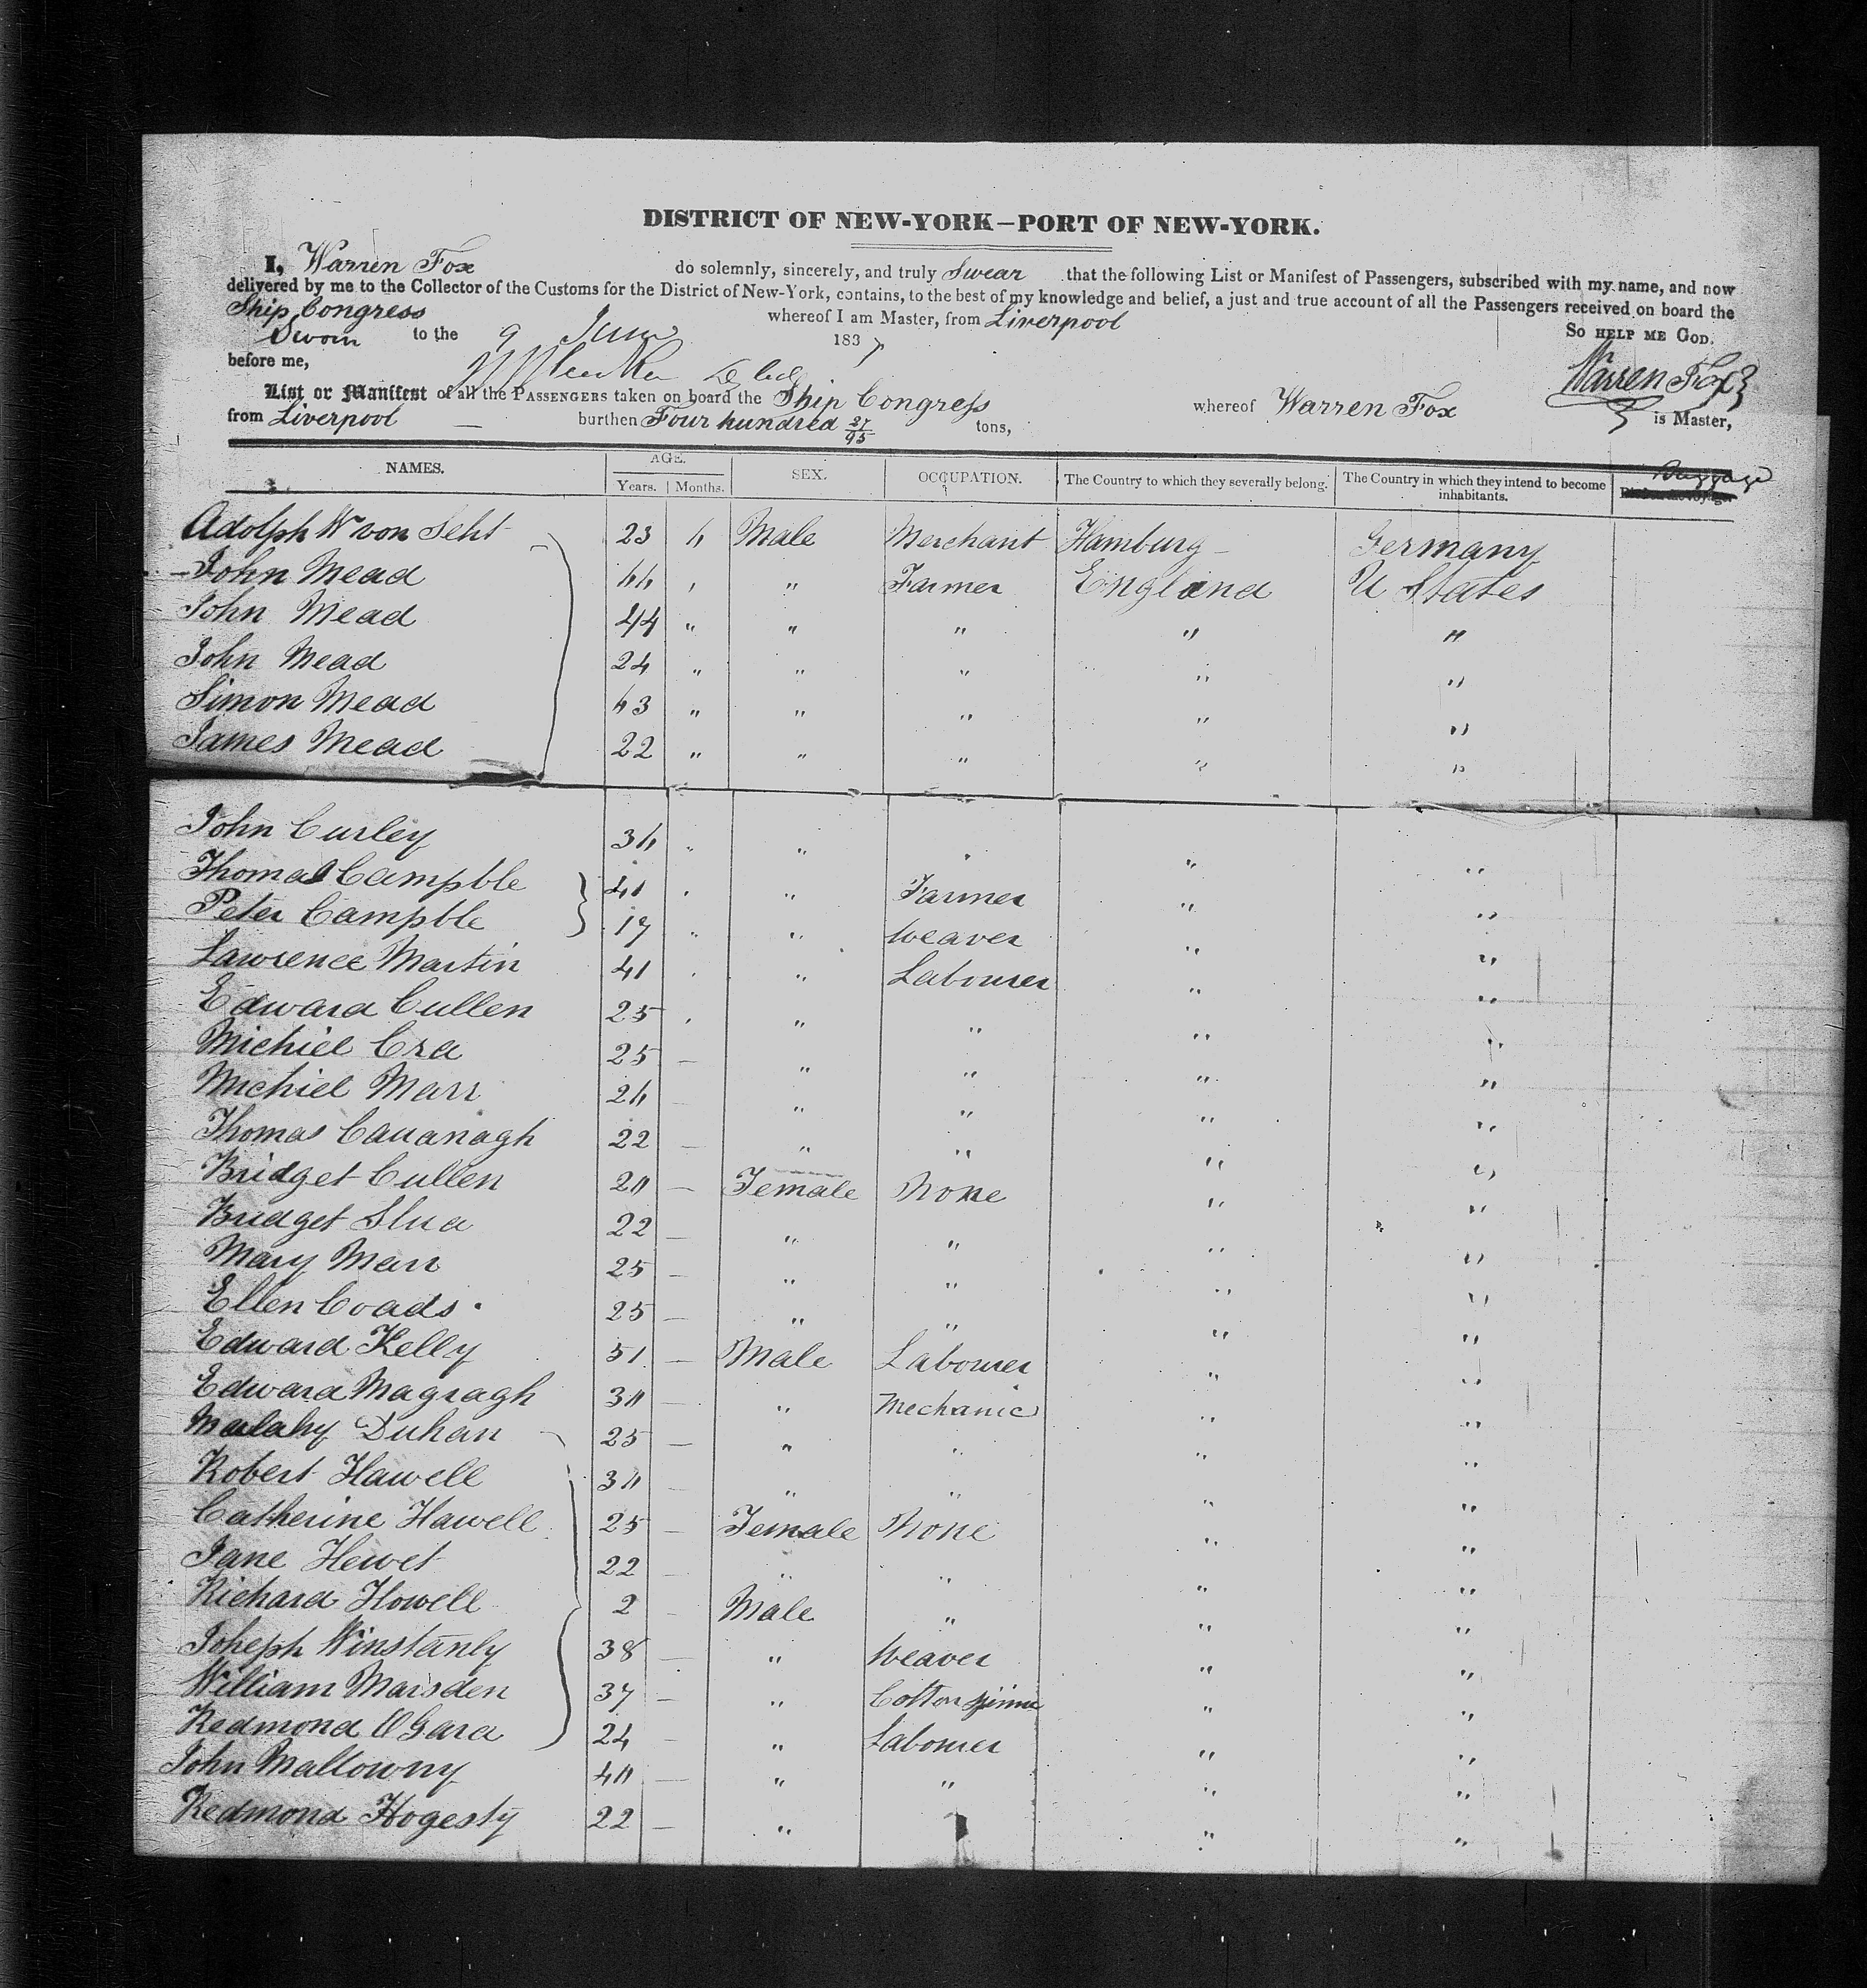 DISTRICT OF NEW-YORK—PORT OF NEW-YORK.
I, Warren Fox do solemnly, sincerely, and truly Swear that the following List or Manifest of Passengers, subscribed with my name, and now
delivered by me to the Collector of the Customs for the District of New-York, contains, to the best of my knowledge and belief, a just and true account of all the Passengers received on board the
Ship Congress whereof I am Master, from Liverpool So HELP ME GOD.
Sworn to the 9 June 1837
before me, Warren Fox
List or Manifest of all the PASSENGERS taken on board the Ship Congress whereof Warren Fox is Master,
from Liverpool burthen Four hundred 27/95 tons,
NAMES. AGE. Years. Months. SEX. OCCUPATION. The Country to which they severally belong. The Country in which they intend to become inhabitants. Baggage
Adolph W von Seht 23 4 Male Merchant Hamburg Germany
John Mead 44 " " Farmer England U States
John Mead 44 " " " " "
John Mead 24 " " " " "
Simon Mead 43 " " " " "
James Mead 22 " " " " "
John Curley 34 " " " " "
Thomas Campble 40 " " Farmer " "
Peter Campble 17 " " Weaver " "
Lawrence Martin 40 " " Labourer " "
Edward Cullen 25 " " " " "
Michiel Cra 25 — " " " "
Michiel Marr 24 — " " " "
Thomas Cauanagh 22 — " " " "
Bridget Cullen 20 — Female None " "
Bridget Slua 22 — " " " "
Mary Marr 25 — " " " "
Ellen Coads 25 — " " " "
Edward Kelly 51 — Male Labourer " "
Edward Magragh 30 — " Mechanic " "
Malahy Duhan 25 — " " " "
Robert Hawell 30 — " " " "
Catherine Hawell 25 — Female None " "
Jane Hewet 22 — " " " "
Richard Howell 2 — Male " " "
Joheph Winstanly 38 — " Weaver " "
William Marsden 37 — " Cotton spinner " "
Redmond O Gara 24 — " Labourer " "
John Mallowny 40 — " " " "
Redmond Hogesty 22 — " " "